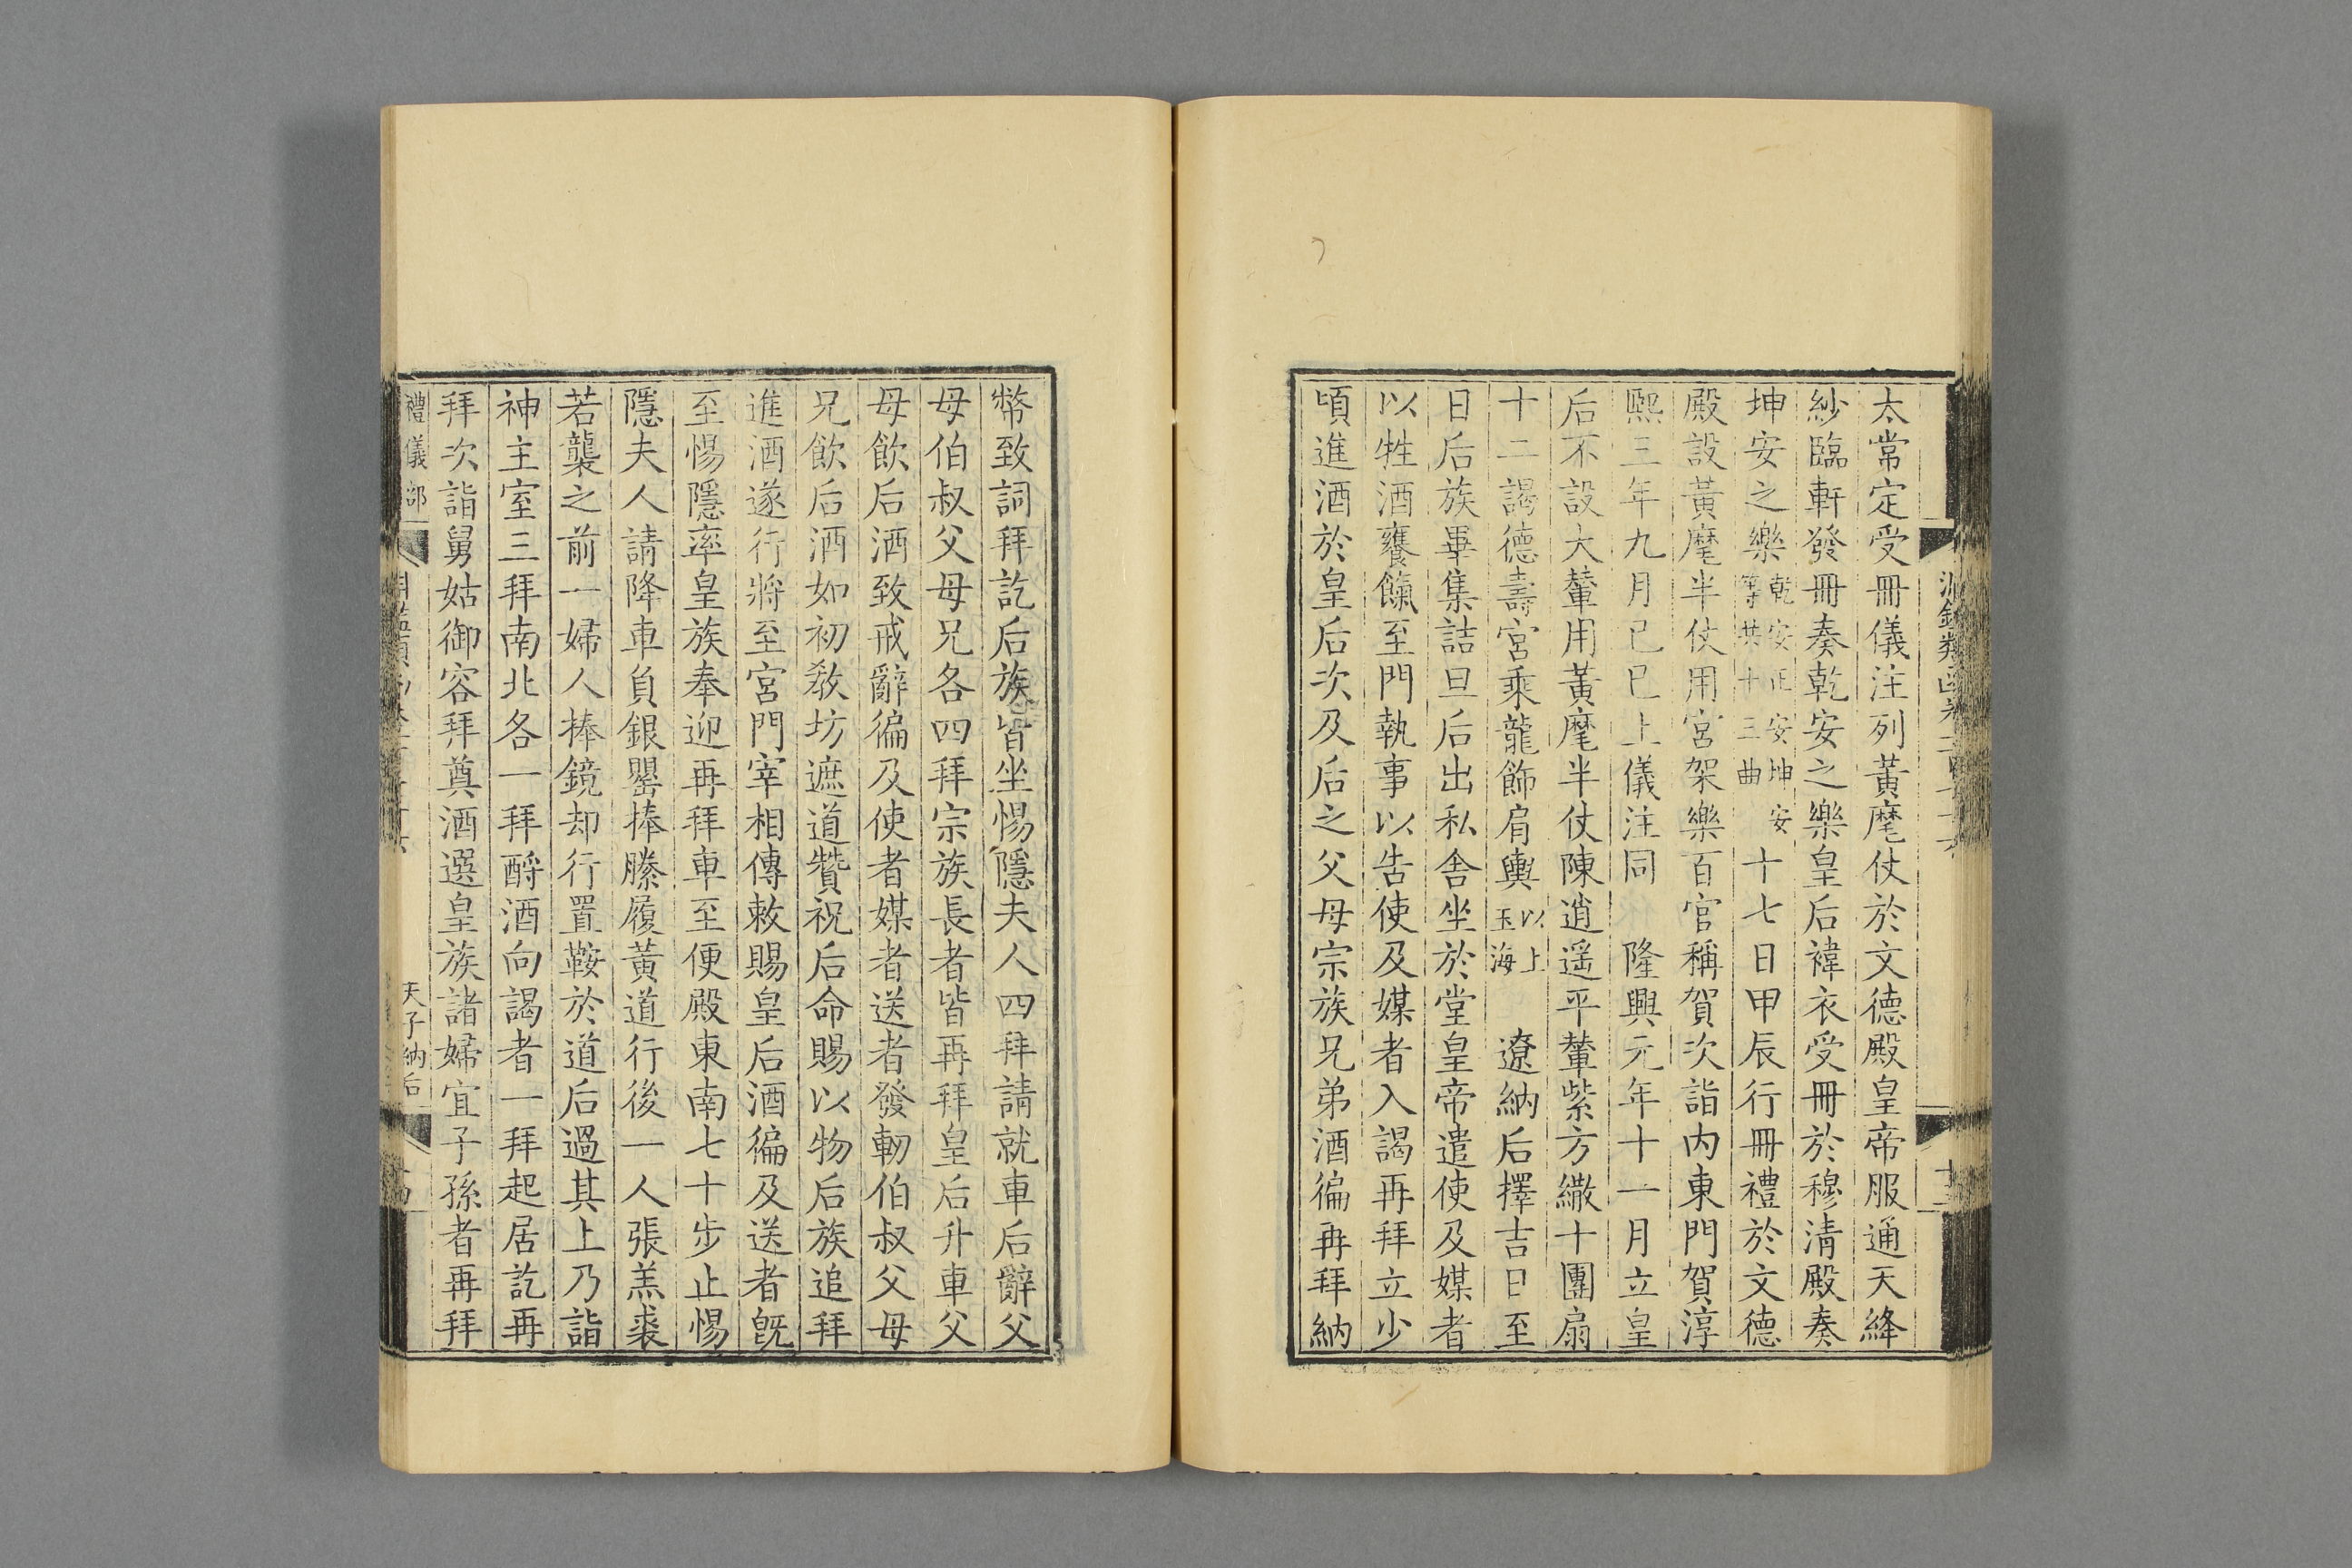 太常定受冊儀注列黃麾仗於文德殿皇帝服通天絳
紗臨軒發冊奏乾安之樂皇后褘衣受冊於穆清殿奏
坤安之樂乾安正安坤安等共十三曲十七日甲辰行冊禮於文德
殿設黃麾半仗用宮架樂百官稱賀次詣内東門賀淳
熙三年九月己巳上儀注同隆興元年十一月立皇
后不設大輦用黃麾半仗陳逍遥平輦紫方繖十團扇
十二謁德壽宮乘龍飾肩輿以上玉海遼納后擇吉日至
日后族畢集詰旦后出私舍坐於堂皇帝遣使及媒者
以牲酒饔餼至門執事以告使及媒者入謁再拜立少
頃進酒於皇后次及后之父母宗族兄弟酒徧再拜納
幣致詞拜訖后族皆坐惕隱夫人四拜請就車后辭父
母伯叔父母兄各四拜宗族長者皆再拜皇后升車父
母飲后酒致戒辭徧及使者媒者送者發軔伯叔父母
兄飲后酒如初敎坊遮道贊祝后命賜以物后族追拜
進酒遂行將至宮門宰相傳敕賜皇后酒徧及送者旣
至惕隱率皇族奉迎再拜車至便殿東南七十步止惕
隱夫人請降車負銀罌捧縢履黃道行後一人張羔裘
若襲之前一婦人捧鏡却行置鞍於道后過其上乃詣
神主室三拜南北各一拜酹酒向謁者一拜起居訖再
拜次詣舅姑御容拜奠酒選皇族諸婦宜子孫者再拜
禮儀部
天子納后